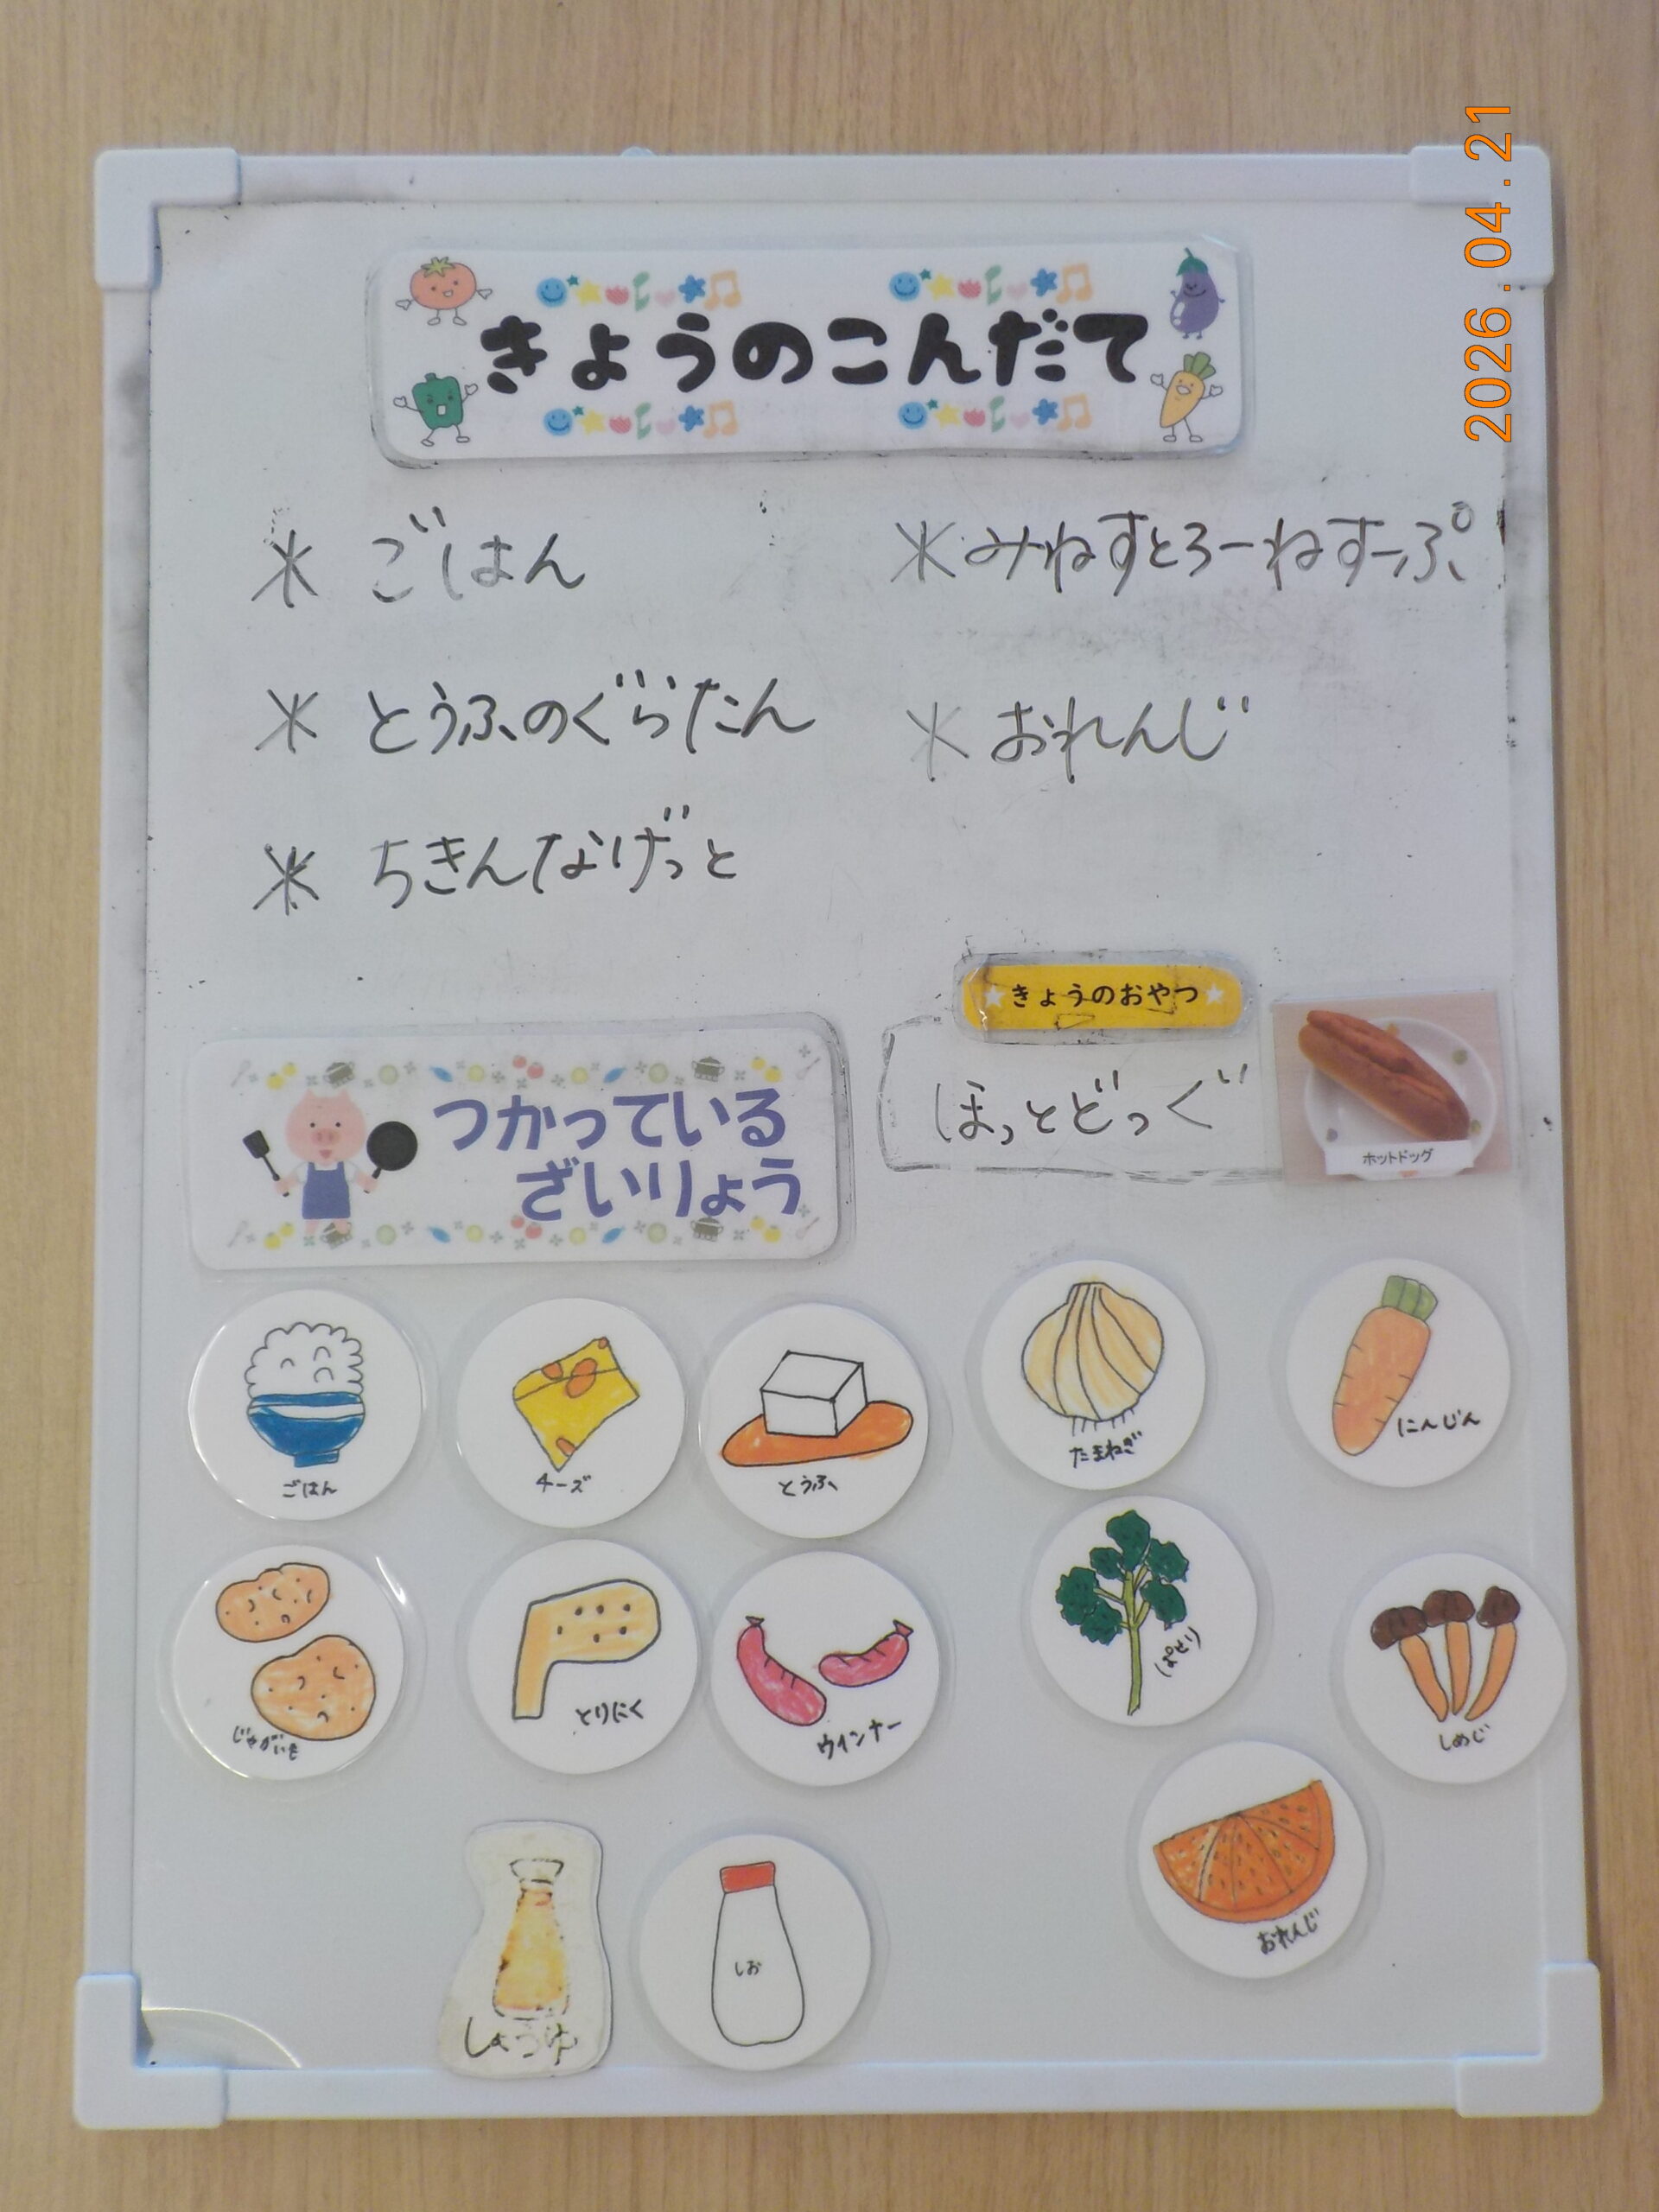 2026.04.21
きょうのこんだて
* ごはん
* とうふのぐらたん
* ちきんなげっと
* みねすとろーねすーぷ
* おれんじ
きょうのおやつ
ほっとどっぐ
ホットドッグ
つかっている
ざいりょう
ごはん
チーズ
とうふ
たまねぎ
にんじん
じゃがいも
とりにく
ウインナー
ぱせり
しめじ
しょうゆ
しお
おれんじ